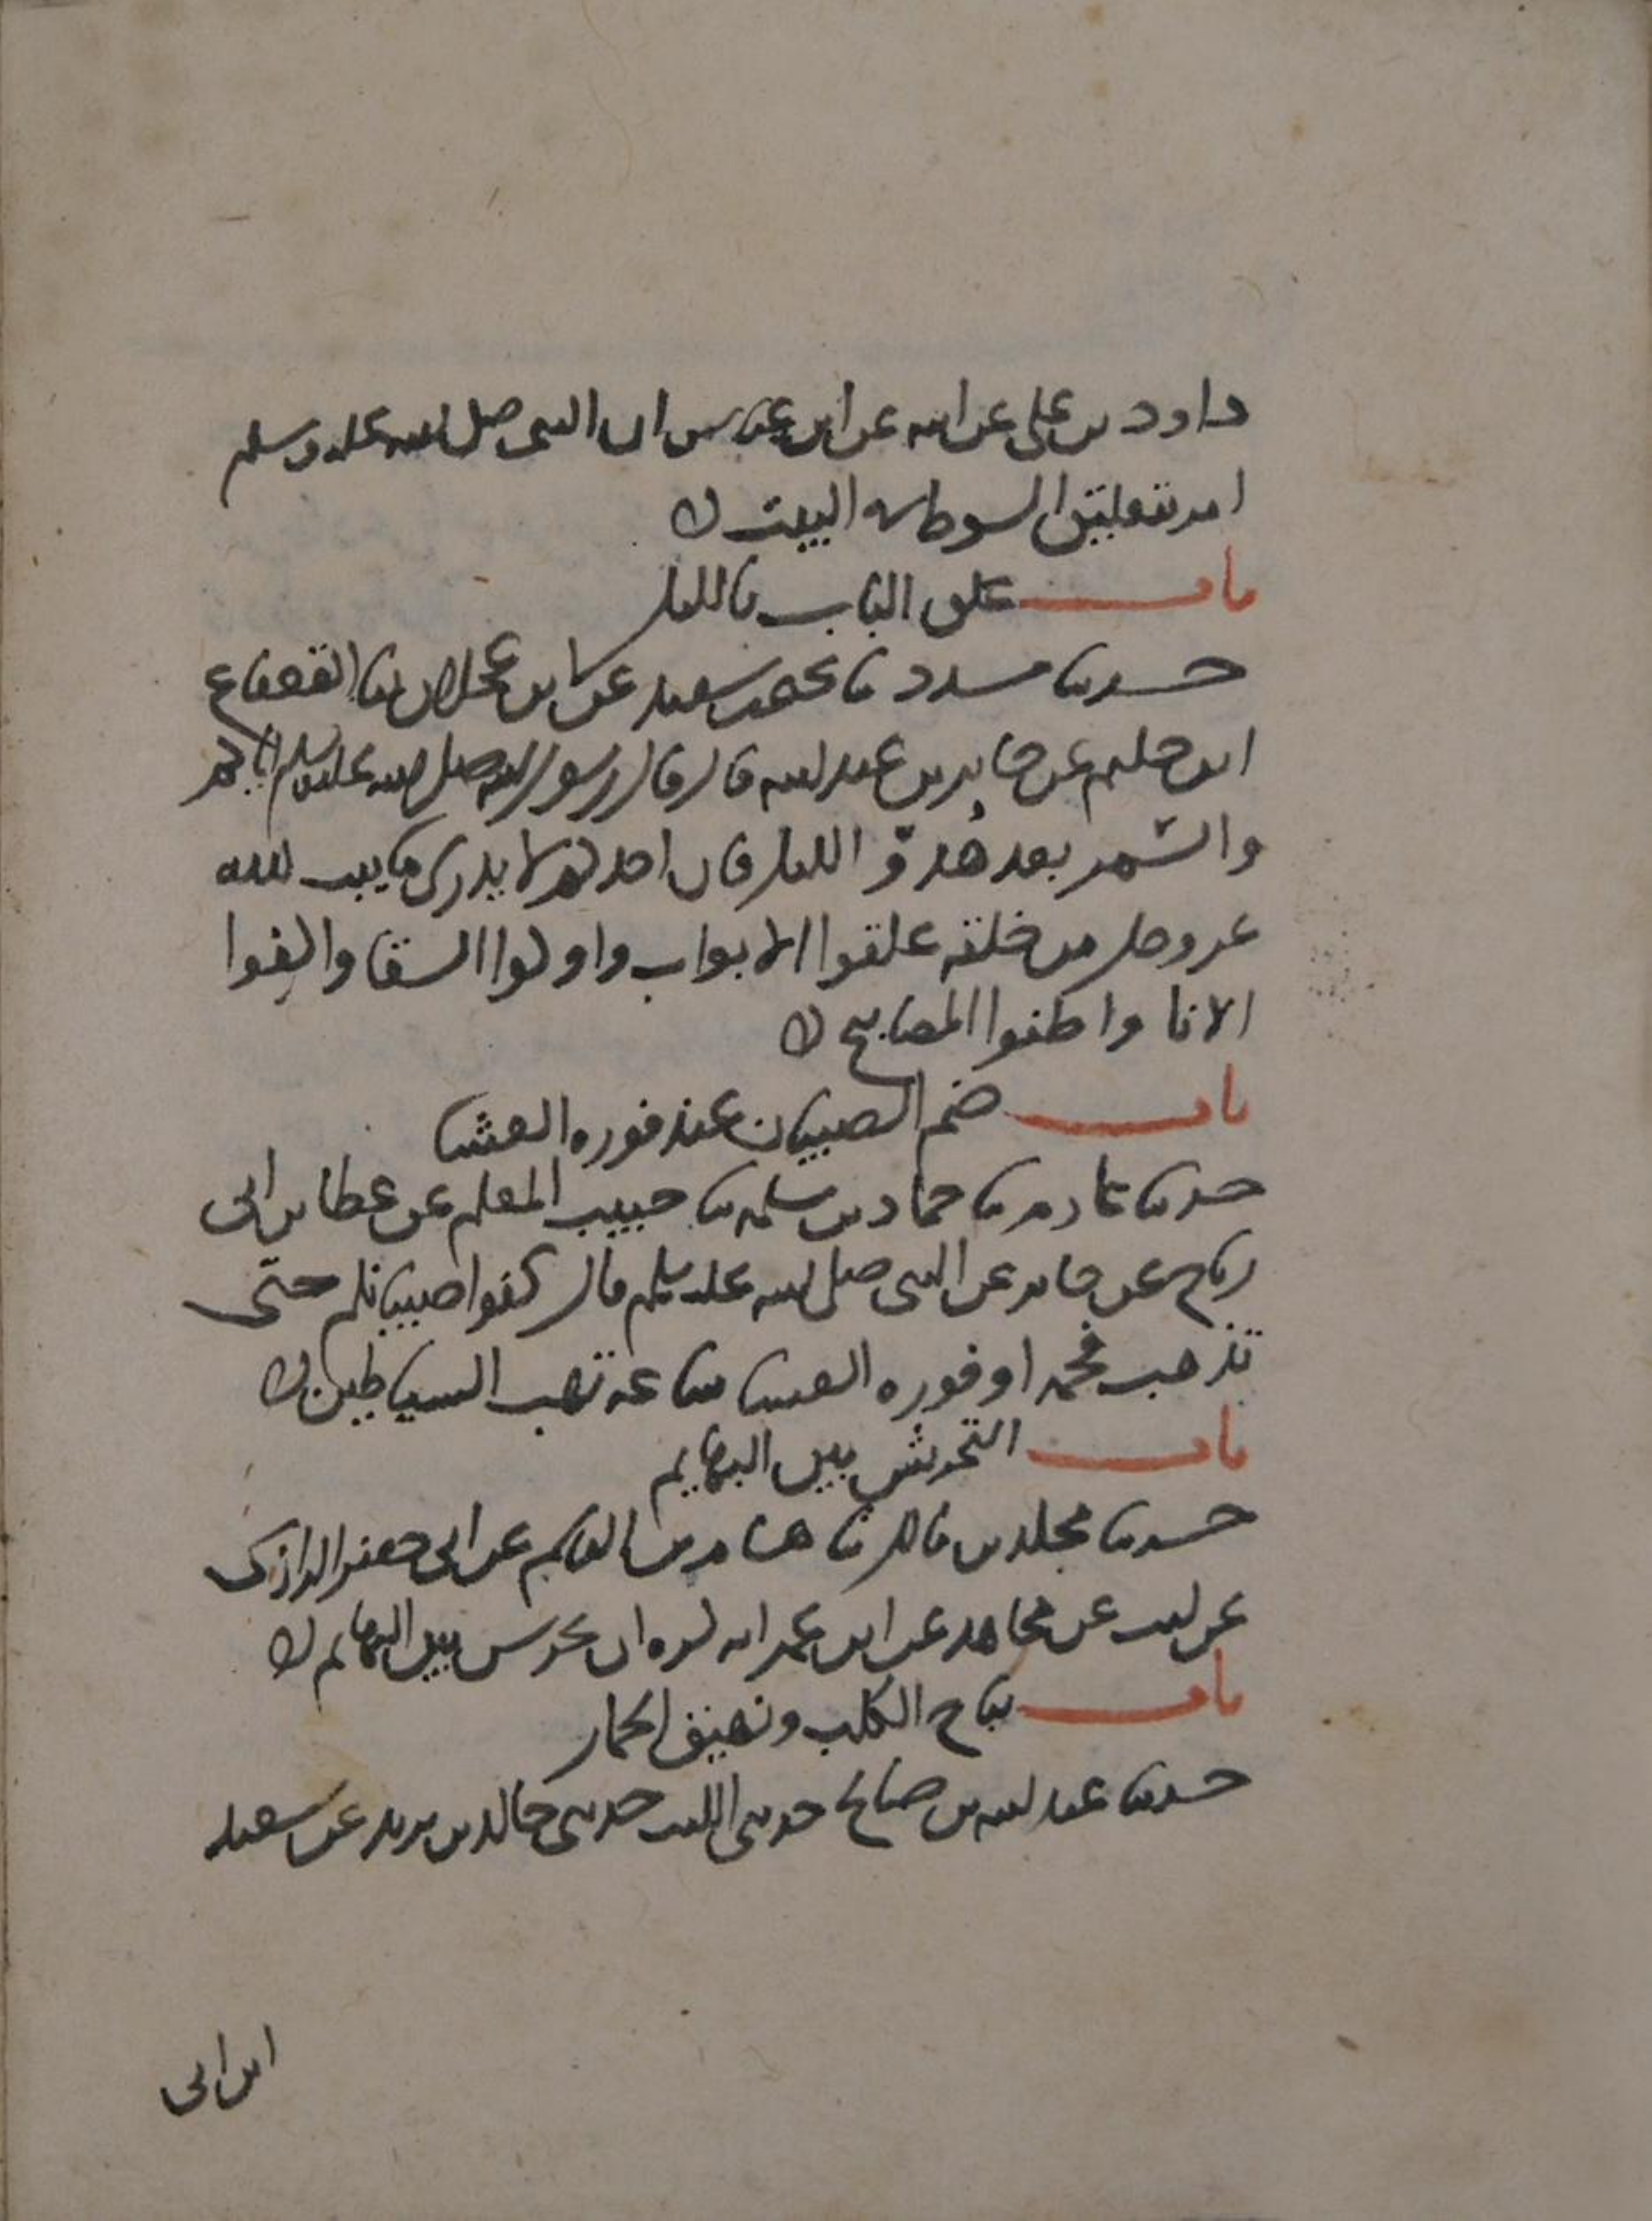 داود بن على عن ابيه عن ابن عباس ان النبى صلى الله عليه وسلم
امر بتعليق السوط فى البيت
باب غلق الباب بالليل
حدثنا مسدد نا يحيى بن سعيد عن ابن عجلان نا القعقاع
ابن حكيم عن جابر بن عبد الله قال قال رسول الله صلى الله عليه وسلم اياكم
والسمر بعد هُدُوّ الليل فان احدكم لا يدرى ما يبث الله
عز وجل من خلقه غلقوا الابواب واوكوا السقا واكفوا
الانا واطفوا المصابيح
باب ضم الصبيان عند فوره العشا
حدثنا عارم نا حماد بن سلمه نا حبيب المعلم عن عطا بن ابى
رباح عن جابر عن النبى صلى الله عليه وسلم قال كفوا صبيانكم حتى
تذهب فحمه او فوره العشا ساعه تهب الشياطين
باب التحريش بين البهايم
حدثنا مخلد بن مالك نا هشام بن القاسم عن ابى جعفر الرازى
عن ليث عن مجاهد عن ابن عمر انه كره ان يحرش بين البهايم
باب نباح الكلب ونهيق الحمار
حدثنا عبد الله بن صالح حدثنى الليث حدثنى خالد بن يزيد عن سعيد
ابن ابى